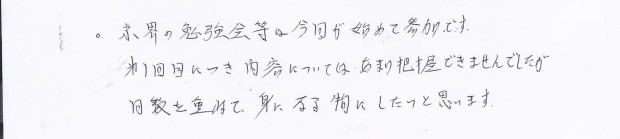 。京界の勉強会等は今回が始めて参加です。
オ1回目につき内容については、あまり把握できませんでしたが
日数を重ねて、身になる物にしたいと思います。